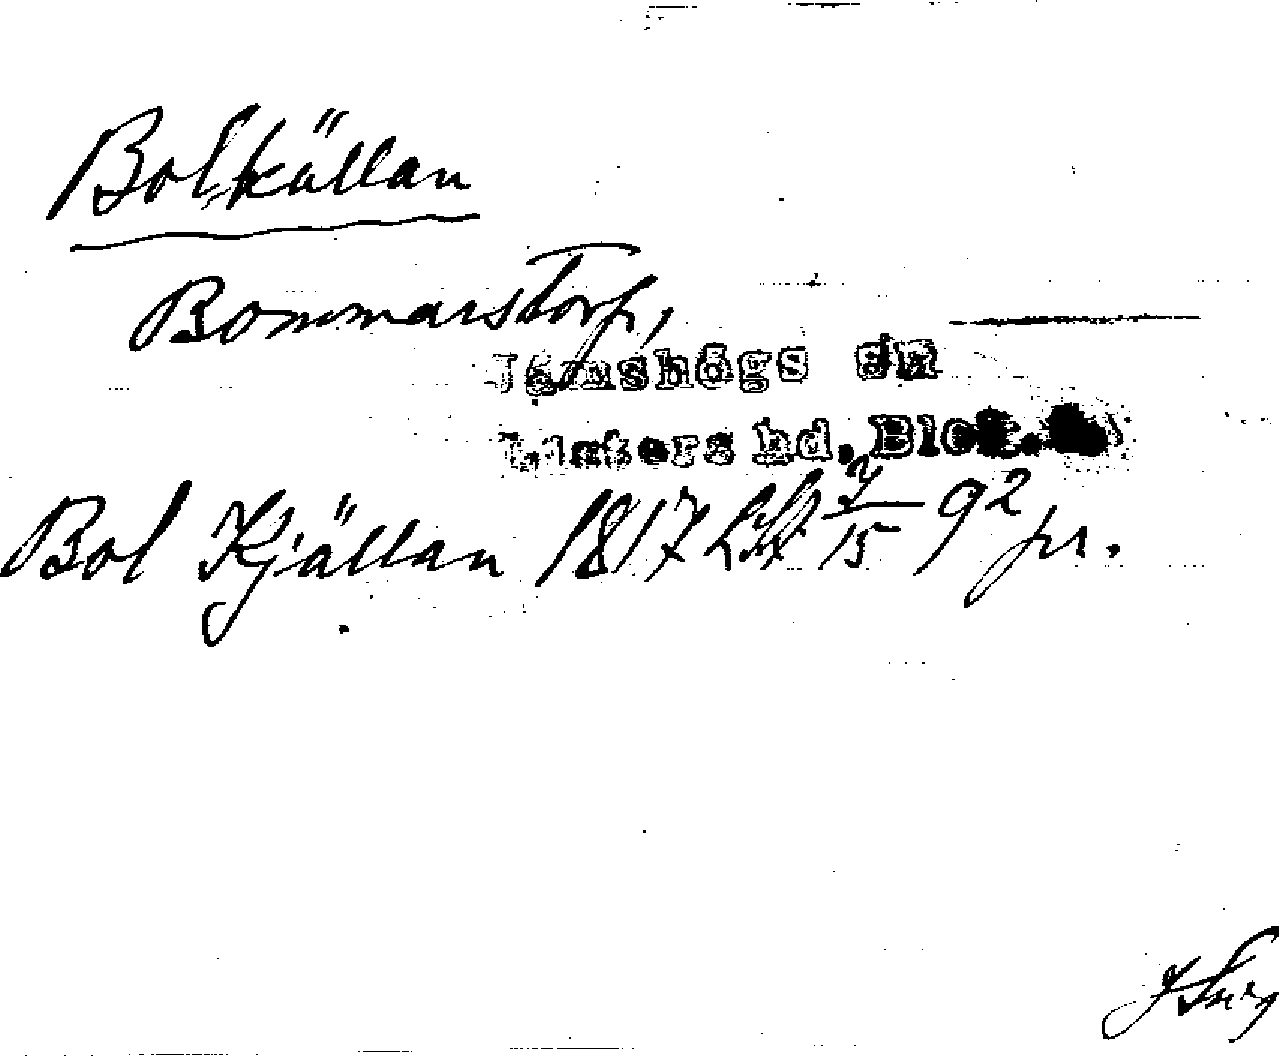 Bolkällan
Bommarstorp,
Jämshögs sn
Listers hd, Blek.
Bol Kjällan 1817 LSA 7/15 92 pr.